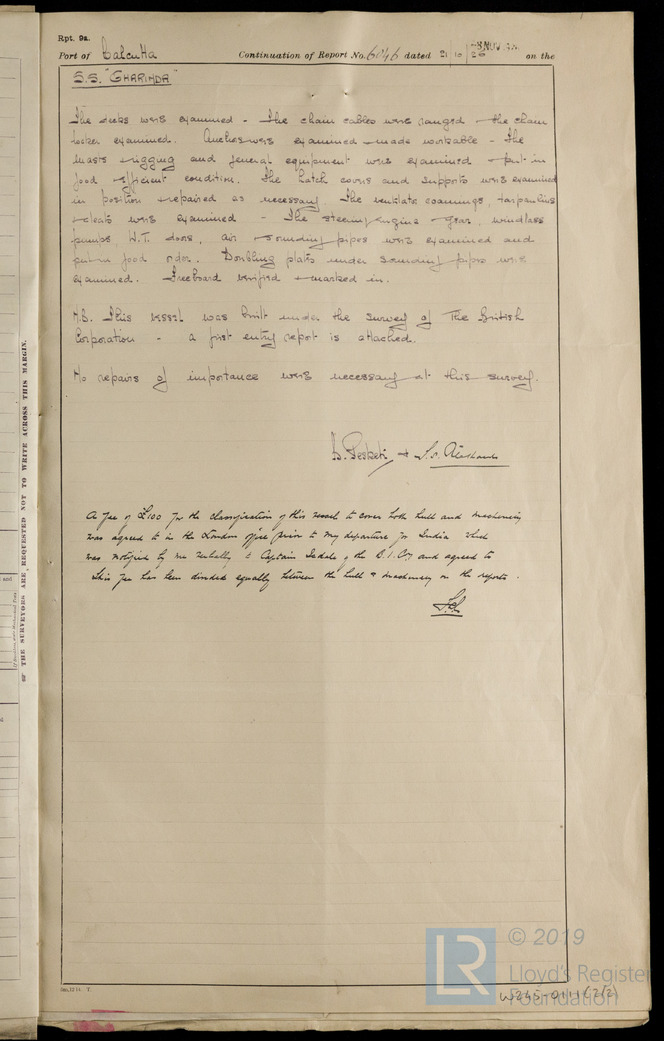 Rpt. 9a.
Port of Calcutta Continuation of Report No. 6046 dated 21/10/26 on the
S.S. "GHARINDA"
The decks were examined - The chain cables were ranged & the chain
locker examined. Anchors were examined & made workable - The
masts & rigging and general equipment were examined & put in
good & efficient condition. The hatch covers and supports were examined
in position & repaired as necessary. The coamings, tarpaulins
& cleats were examined - The steering engine & gear, windlass
pumps, W.T. doors, air & sounding pipes were examined and
put in good order. Doubling plates under sounding pipes were
examined. Freeboard verified & marked in.
N.B. This vessel was built under the survey of The British
Corporation - a first entry report is attached.
No repairs of importance were necessary at this survey.
A fee of £100 for the classification of this vessel to cover both hull and machinery
was agreed to in the London office prior to my departure for India which
was notified by me verbally to Captain of the B.I. Coy and agreed to
This fee has been divided equally between the hull & machinery on the reports.
OF THE SURVEYORS ARE REQUESTED NOT TO WRITE ACROSS THIS MARGIN.
LR
© 2019
Lloyd's Register
Foundation
W245-0111(2/2)